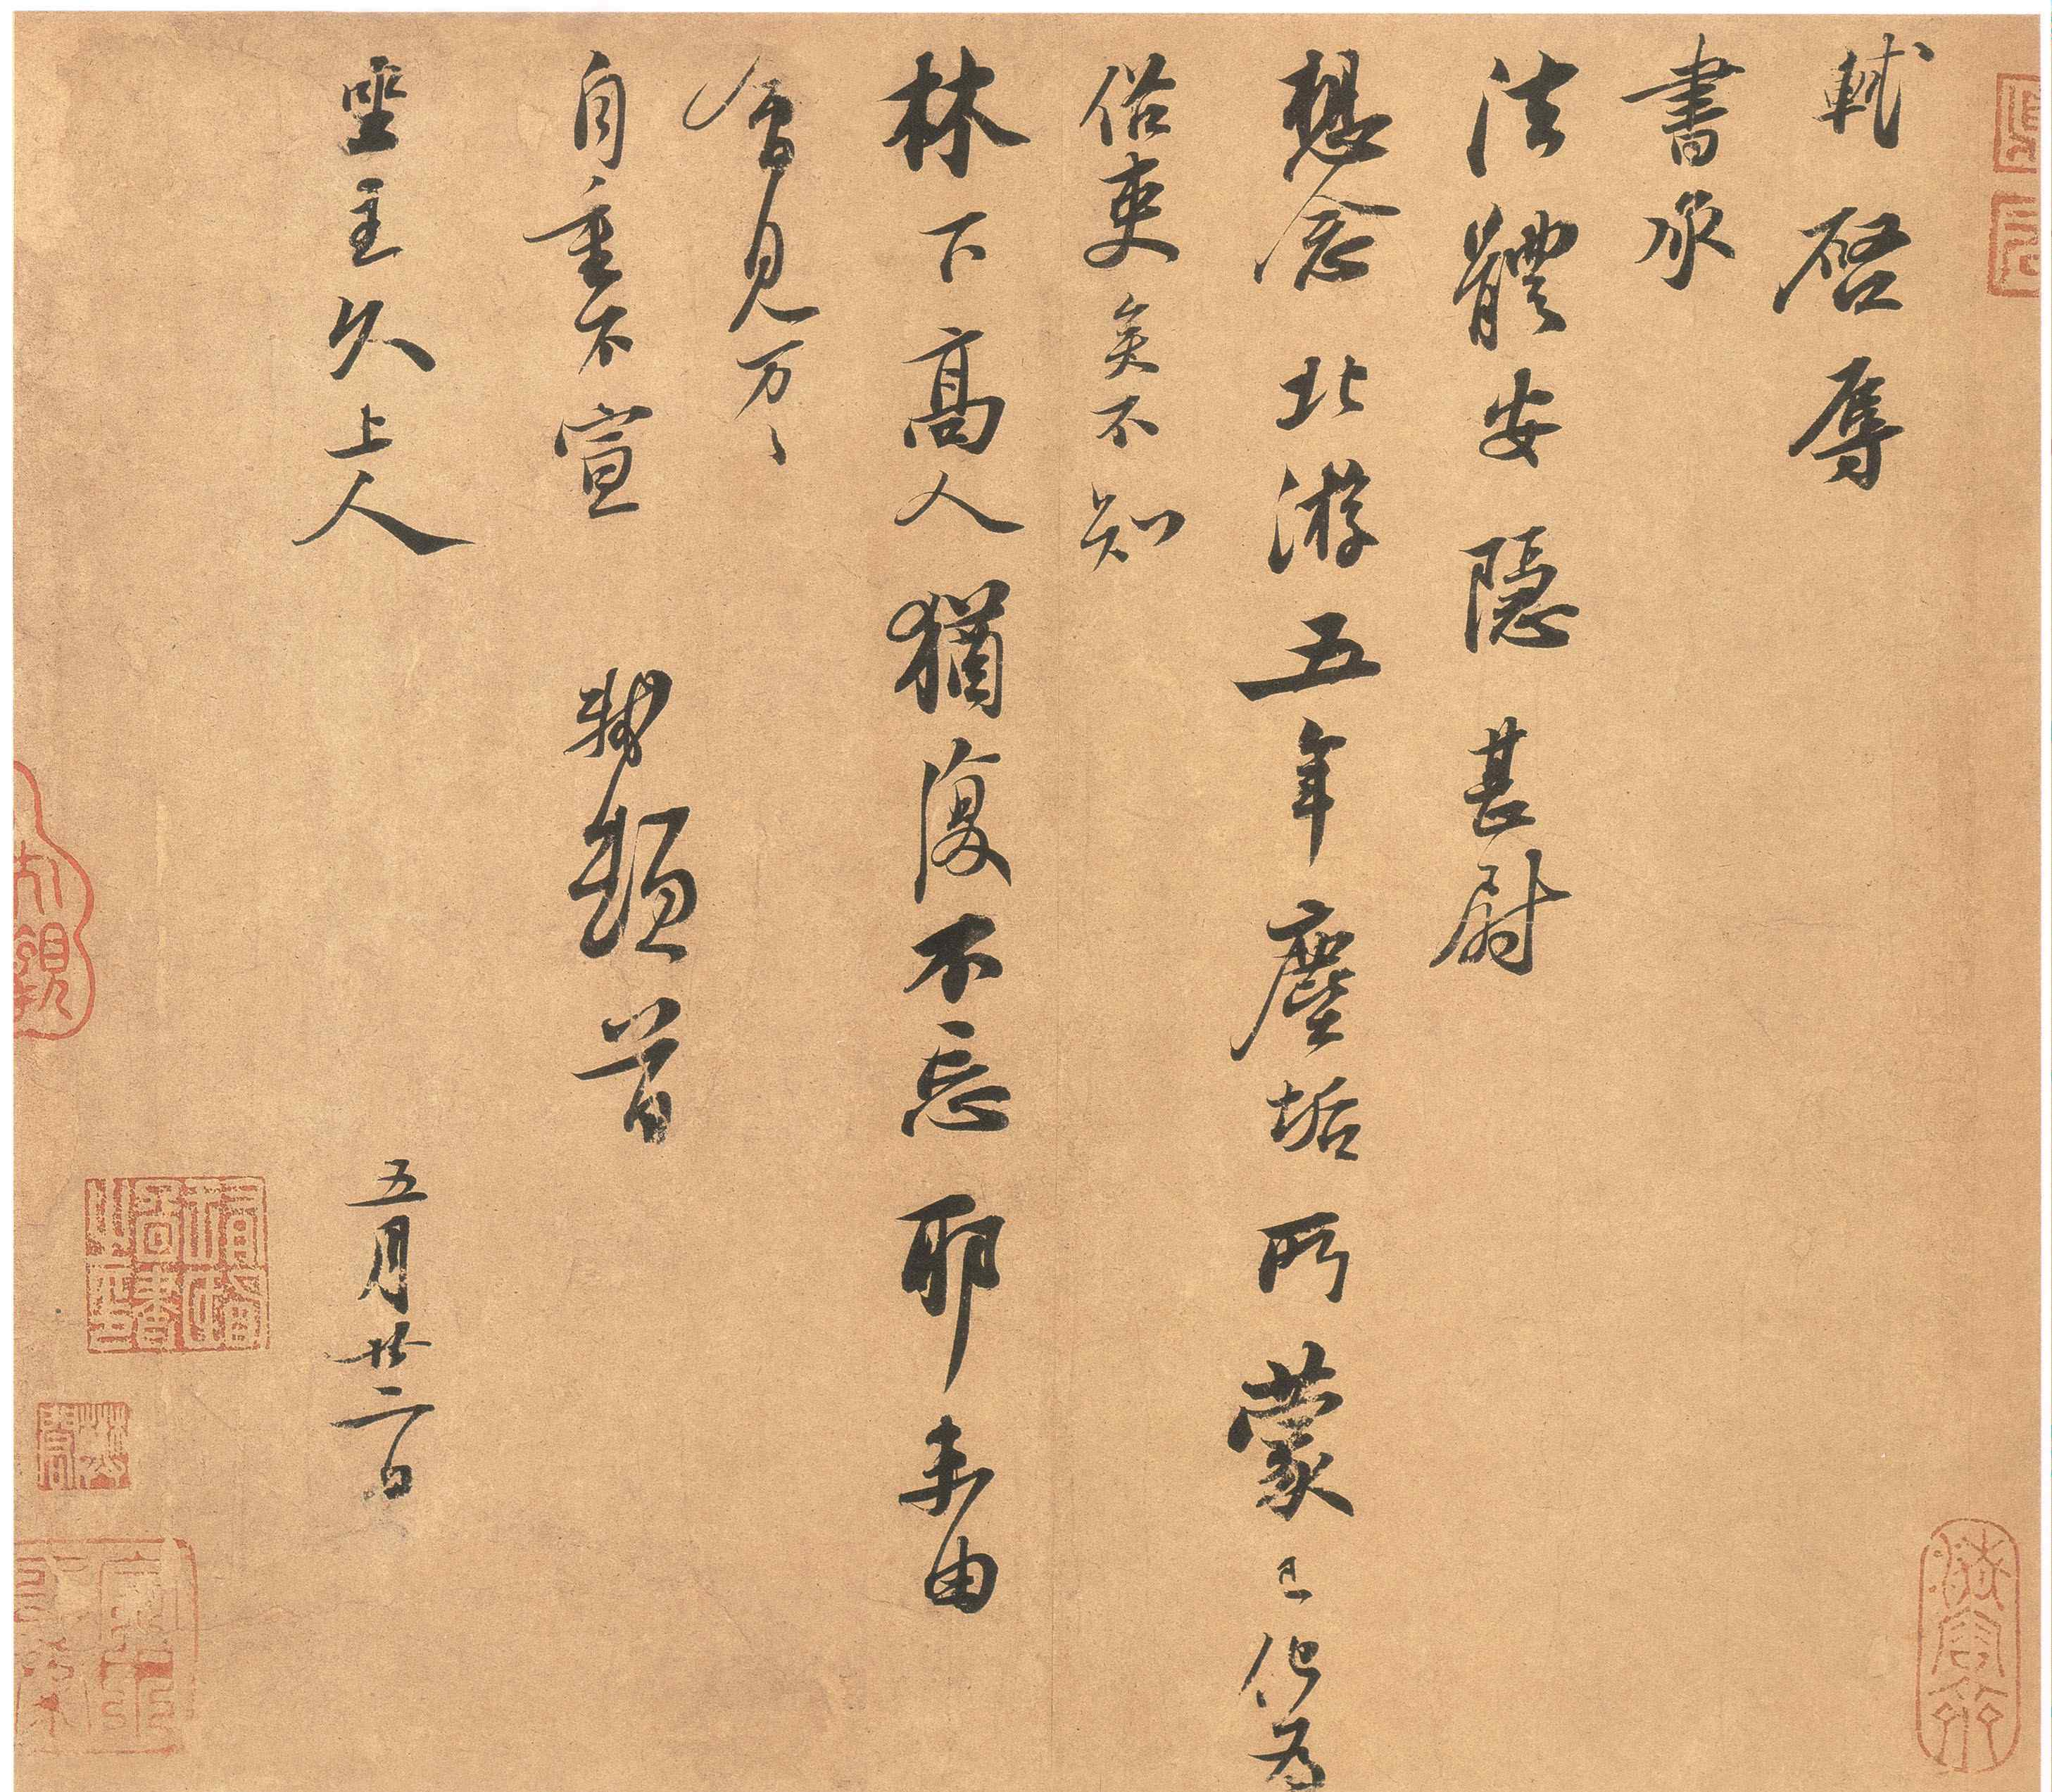 軾啓辱
書承
法體安隱甚尉
想念北游五年塵垢所蒙已化爲
俗吏矣不知
林下高人猶復不忘耶未由
會見万〻
自重不宣　軾頓首
坐主久上人　五月廿二日